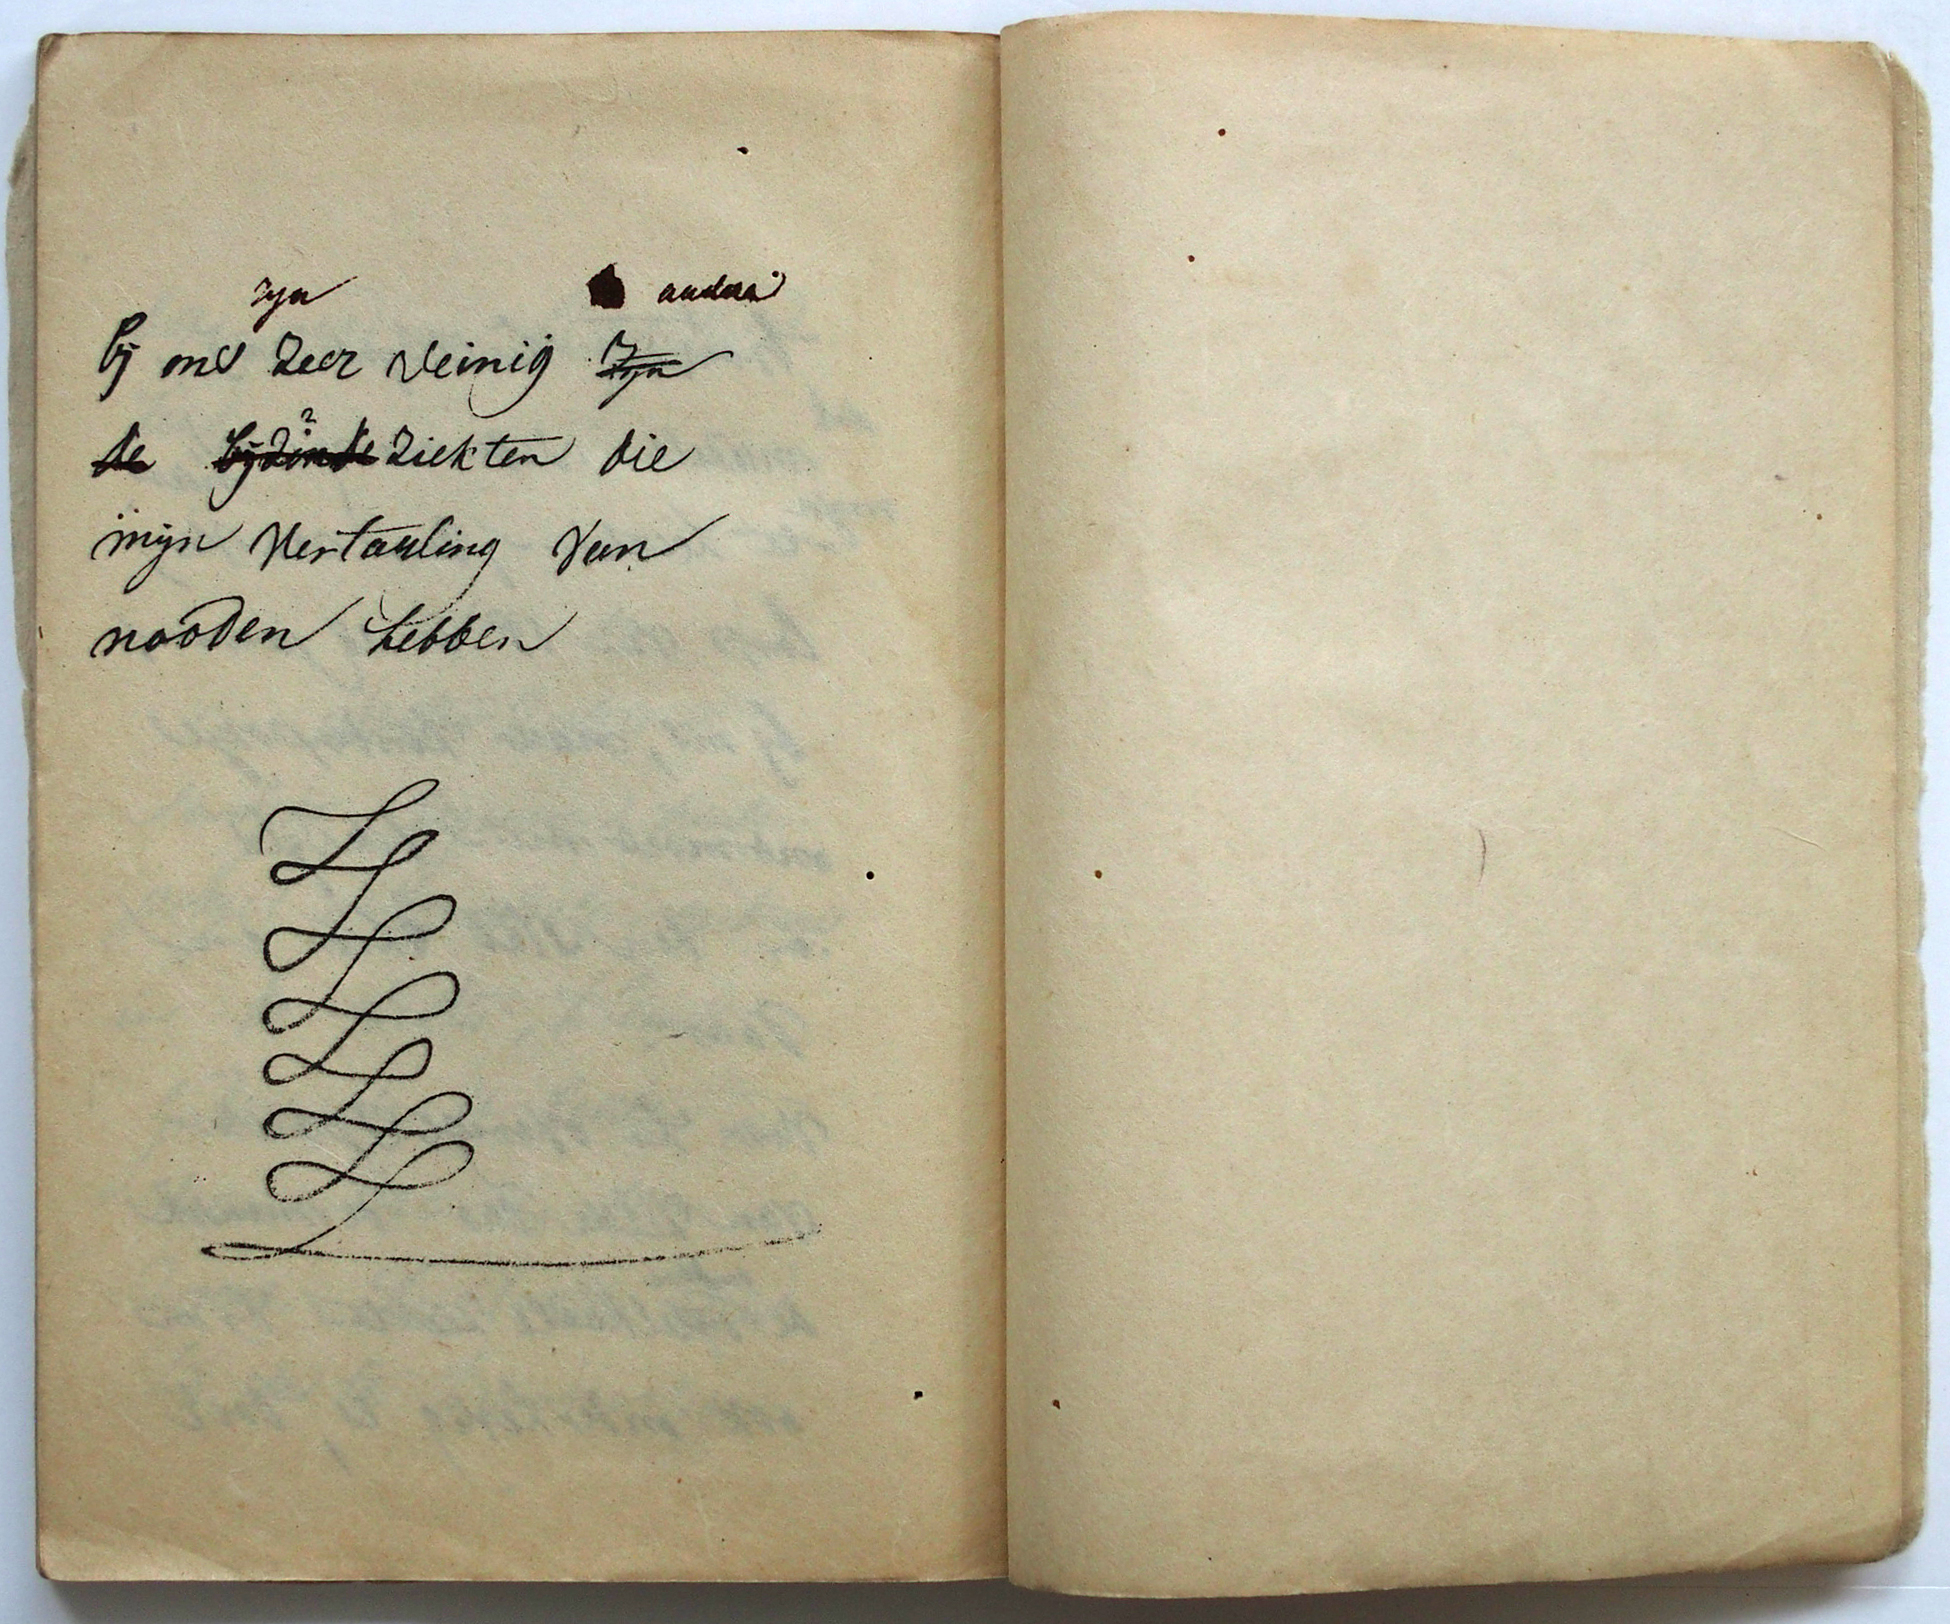 zyn andere
bij ons zeer weinig zyn
de bijzinde ziekten die
mijn vertaaling van
nooden hebben